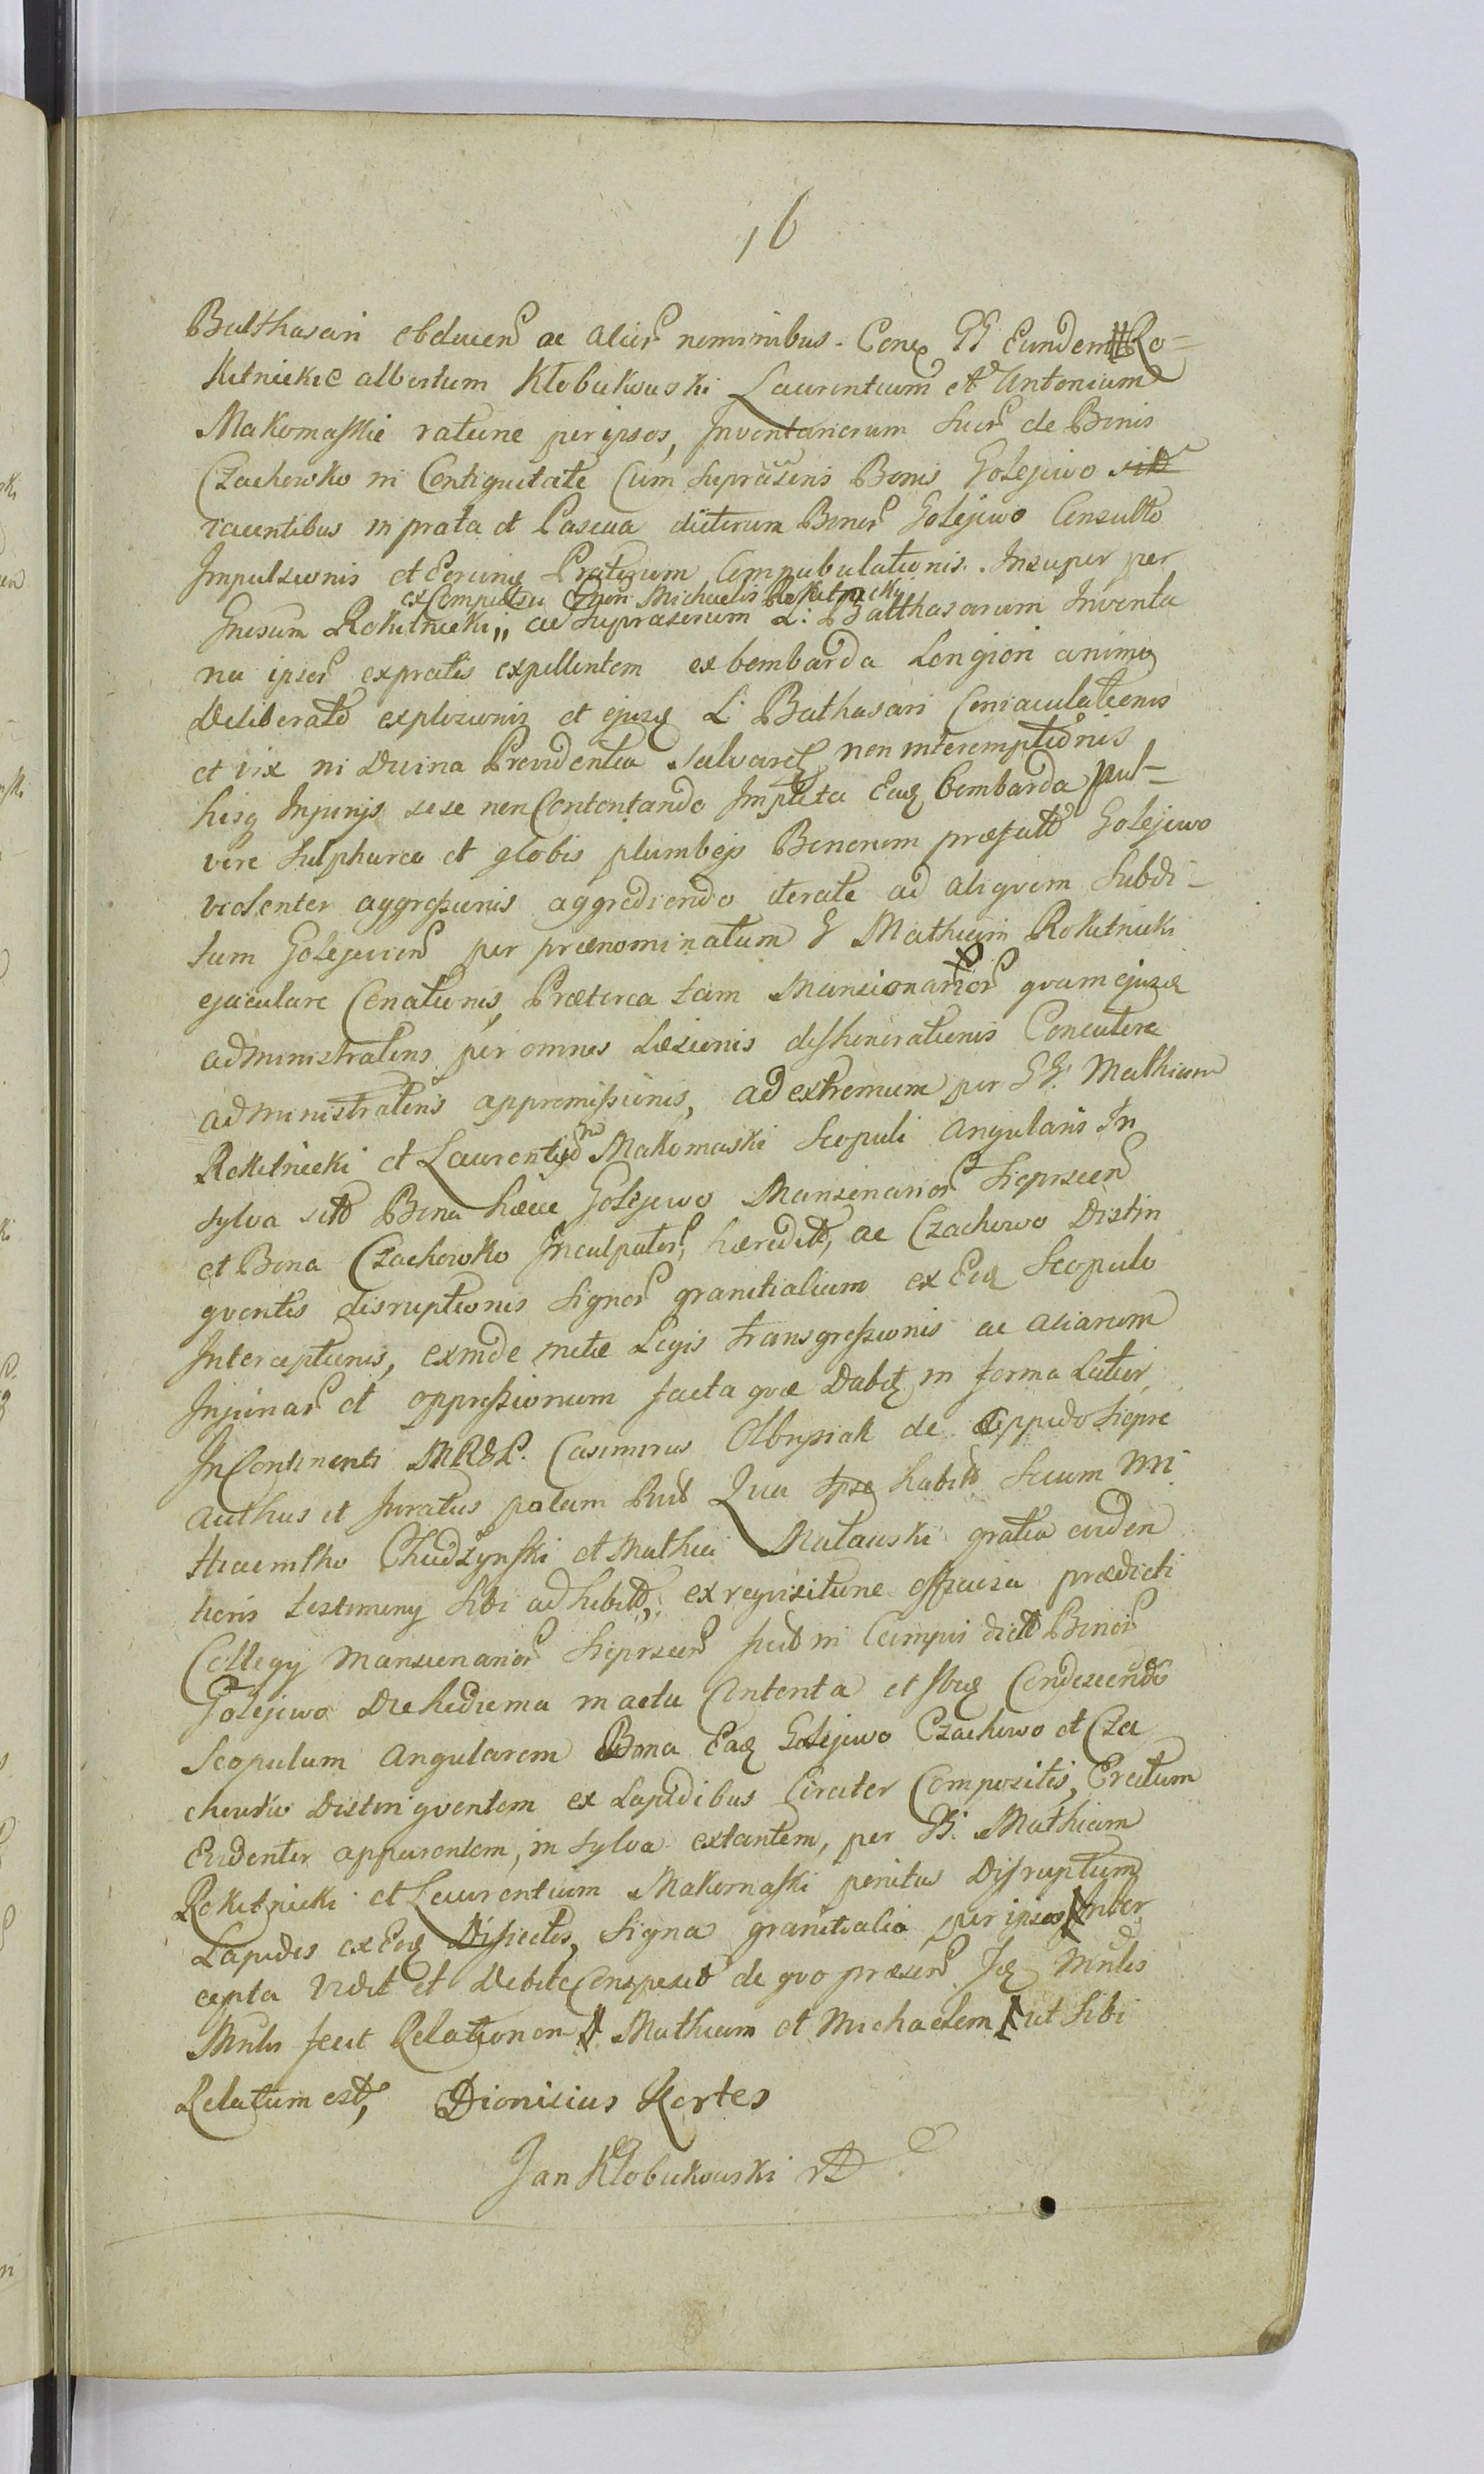 16
Balthasari obducen ac alior nominibus. Conq GG Eundem Ro=
kitnickie albertum Kłobukowski Laurentium et Antonium
Makomaskie ratione per ipsos, Inventariorum suor de Bonis
Czachowko in Contiguitate Cum suprascris Bonis Golejewo
iacentibus in prata et Pascua dictorum Bonor Golejewo Consulto
Impulsionis et Eorumq Pratorum Compabulationis. Insuper per
ex Compulsu Michaelis Rokitnicki
Gnosum Rokitnicki,, ac suprascrum L: Balthasarum Inventa
na ipsor ex pratis expellentem ex bombarda Longiori animo
Deliberato explosionis et ejusq L: Bathasari Coniaculationis
et vix ni Divina Providentia salvaret, non interemptionis
hisq Injurys sese non Contentando Impleta Eaq bombarda pul=
vere sulphureo et globis plumbejs Bonorum præfatt Golejewo
violenter aggressionis aggrediendo iterate ad aliquem subdi=
tum Golejevien per prænominatum G Mathiam Rokitnicki
ejaculare Conationis, Præterea tam Mansionarior quam ejusq
administratoris per omnes Læsionis deshonorationis Concutere
administratoris appromissionis, ad extremum per GG: Mathiam
Rokitnicki et Laurentium Makomaski Scopuli angularis In
sylva sitt Bona hæcce Golejewo Mansionarior Sieprscen
et Bona Czachowko Inculpator, hæreditt, ac Czachowo Distin
guentis disruptionis signor granitialium ex Eoq Scopulo
Interceptionis, exinde metæ Legis transgressionis ac aliarum
Injuriar et oppressionum facta quæ Dabitq in forma Latior
In Continenti MRGL. Casimirus Olbrysiak de Oppido Sieprc
authus et Juratus palam Rud Qua Ipse habitt secum NN:
Hiacintho Chudzynski et Mathia Mulawski gratia eviden
tioris testimony sibi adhibitt, ex requisitione officiosa prædicti
Collegy Mansionarior Sieprscen fuit in Campis dictt Bonor
Golejewo Die hedierna in actu Contenta et ibiq Condescendo
Scopulum angularem Bona Eaq Golejewo Czachowo et Cza
chowko Distinguentem ex Lapidibus Circiter Compositis, Erectum
Evidenter apparentem, in sylva extantem, per GG: Mathiam
Rokitnicki et Laurentium Makomaski penitus Disruptum
Lapides ex Eoq Disiectos, signa granitialia per ipsos Inter
cepta vidit et Debite Conspexit de quo præsen Jq Mnlis
Mnlis fecit Relationem Mathiam et Michaelem ut sibi
Relatum est, Dionisius Kortes
Jan Kłobukowski